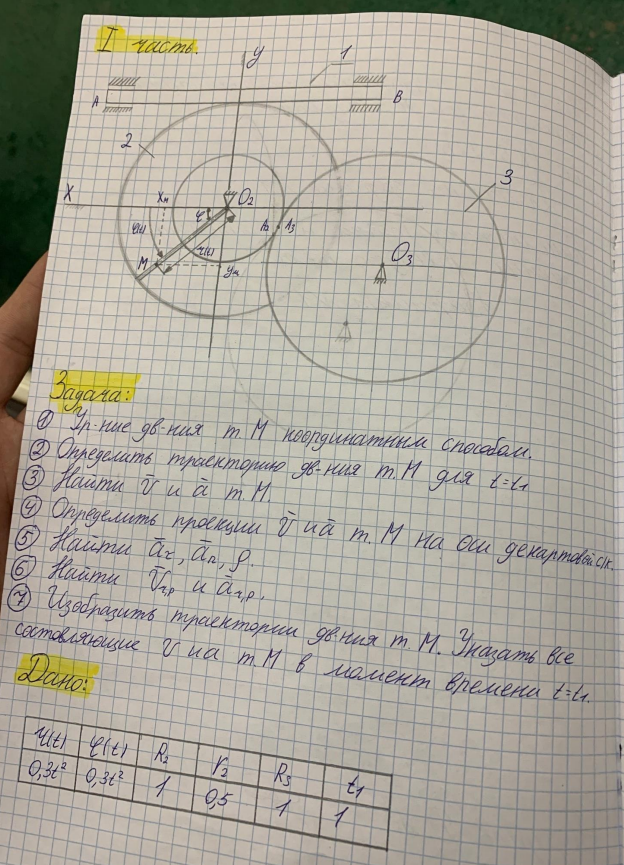 I часть.
y
1
A
B
2
3
X
Xм
φ
O₂
φ(t)
r(t)
A₂
A₃
M
yм
O₃
Задача:
① Ур-ние дв-ния т. М координатным способом.
② Определить траекторию дв-ния т. М для t=t₁
③ Найти v̄ и ā т. М.
④ Определить проекции v̄ и ā т. М на оси декартовой с/к.
⑤ Найти āτ, ān, ρ.
⑥ Найти v̄r,p и ār,p.
⑦ Изобразить траектории дв-ния т. М. Указать все
состовляющие v и a т. М в момент времени t=t₁.
Дано:
r(t) φ(t) R₂ r₂ R₃ t₁
0,3t² 0,3t² 1 0,5 1 1